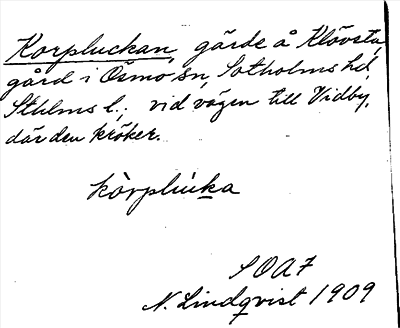 Korpluckan, gärde å Klövsta
gård i Ösmo sn, Sotholms hd,
Sthlms l., vid vägen till Vidby,
där den kröker.
kòrplúka
SOA7
N. Lindqvist 1909